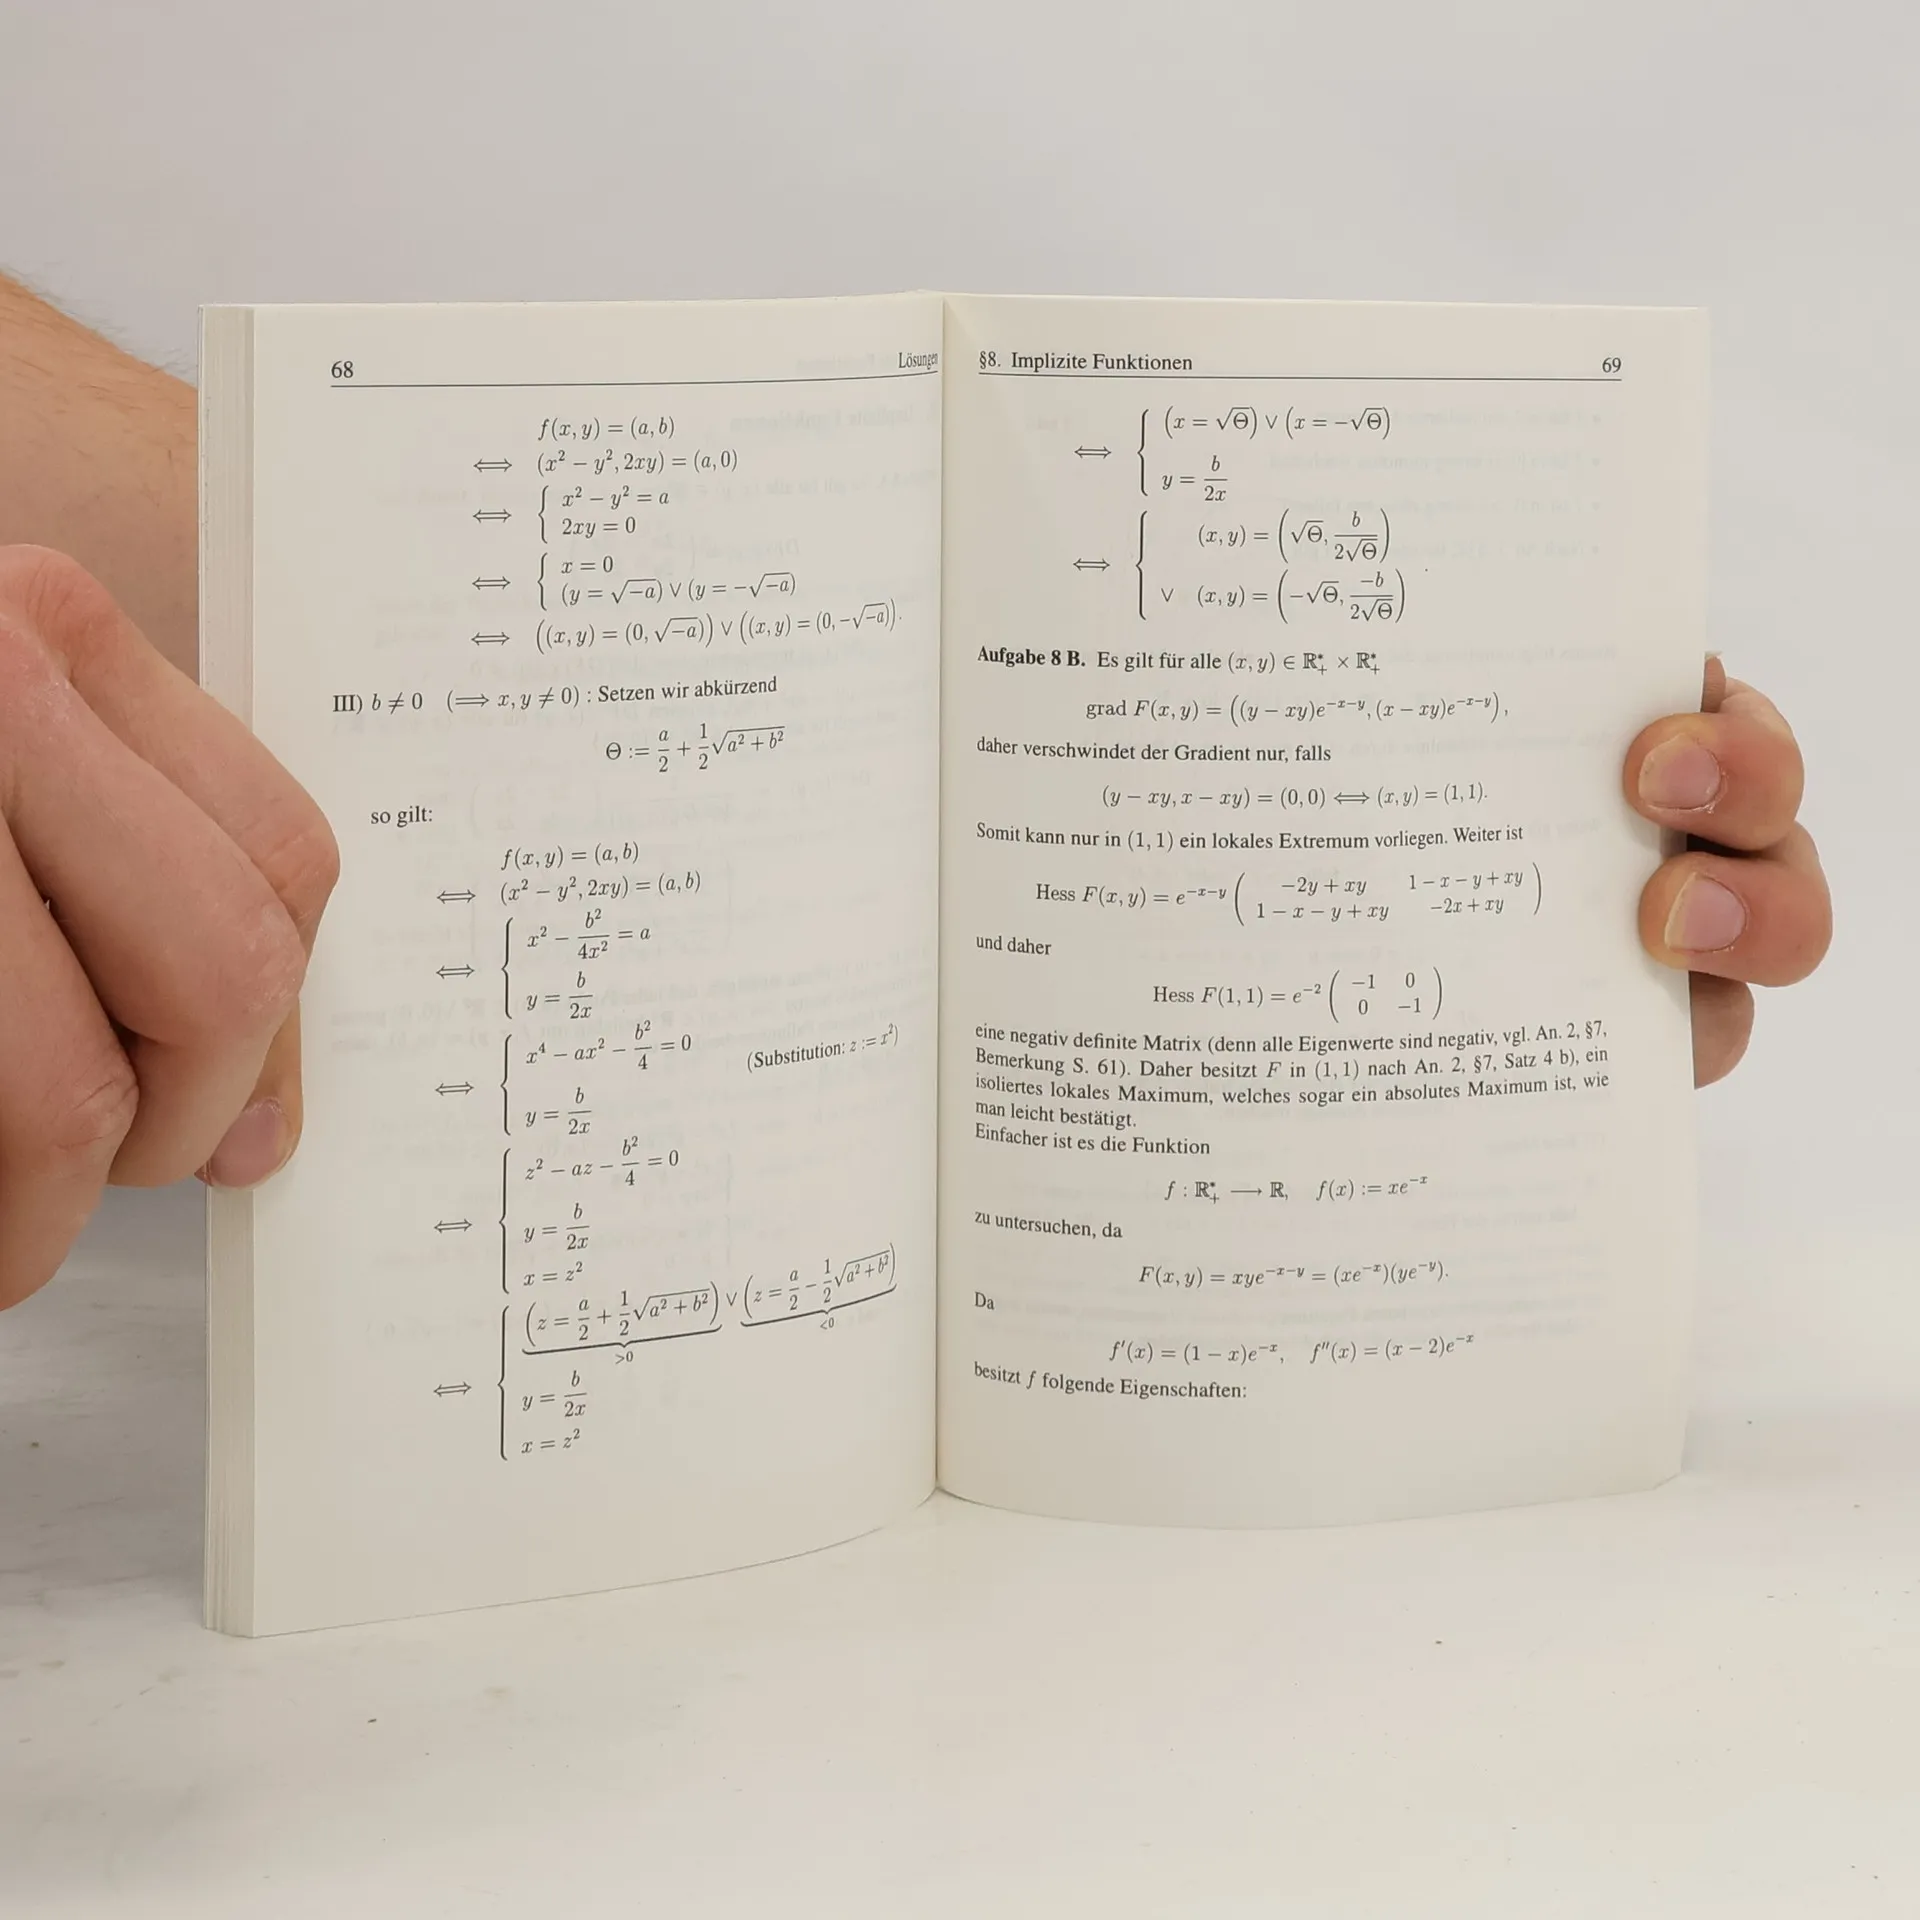 68 Lösungen
f(x, y) = (a, b)
⟺ (x² − y², 2xy) = (a, 0)
⟺ { x² − y² = a
2xy = 0
⟺ { x = 0
(y = √−a) ∨ (y = −√−a)
⟺ ((x, y) = (0, √−a)) ∨ ((x, y) = (0, −√−a)).
III) b ≠ 0 (⟹ x, y ≠ 0) : Setzen wir abkürzend
Θ := a/2 + 1/2 √(a² + b²)
so gilt:
f(x, y) = (a, b)
⟺ (x² − y², 2xy) = (a, b)
⟺ { x² − b²/4x² = a
y = b/2x
⟺ { x⁴ − ax² − b²/4 = 0 (Substitution: z := x²)
y = b/2x
⟺ { z² − az − b²/4 = 0
y = b/2x
x = z²
⟺ { (z = a/2 + 1/2 √(a² + b²)) ∨ (z = a/2 − 1/2 √(a² + b²))
>0 <0
y = b/2x
x = z²
§8. Implizite Funktionen 69
⟺ { (x = √Θ) ∨ (x = −√Θ)
y = b/2x
⟺ { (x, y) = (√Θ, b/2√Θ)
∨ (x, y) = (−√Θ, −b/2√Θ)
Aufgabe 8 B. Es gilt für alle (x, y) ∈ ℝ*₊ × ℝ*₊
grad F(x, y) = ((y − xy)e^{−x−y}, (x − xy)e^{−x−y}),
daher verschwindet der Gradient nur, falls
(y − xy, x − xy) = (0, 0) ⟺ (x, y) = (1, 1).
Somit kann nur in (1, 1) ein lokales Extremum vorliegen. Weiter ist
Hess F(x, y) = e^{−x−y} ( −2y + xy 1 − x − y + xy
1 − x − y + xy −2x + xy )
und daher
Hess F(1, 1) = e^{−2} ( −1 0
0 −1 )
eine negativ definite Matrix (denn alle Eigenwerte sind negativ, vgl. An. 2, §7,
Bemerkung S. 61). Daher besitzt F in (1, 1) nach An. 2, §7, Satz 4 b), ein
isoliertes lokales Maximum, welches sogar ein absolutes Maximum ist, wie
man leicht bestätigt.
Einfacher ist es die Funktion
f : ℝ*₊ ⟶ ℝ, f(x) := xe^{−x}
zu untersuchen, da
F(x, y) = xye^{−x−y} = (xe^{−x})(ye^{−y}).
Da
f′(x) = (1 − x)e^{−x}, f″(x) = (x − 2)e^{−x}
besitzt f folgende Eigenschaften: